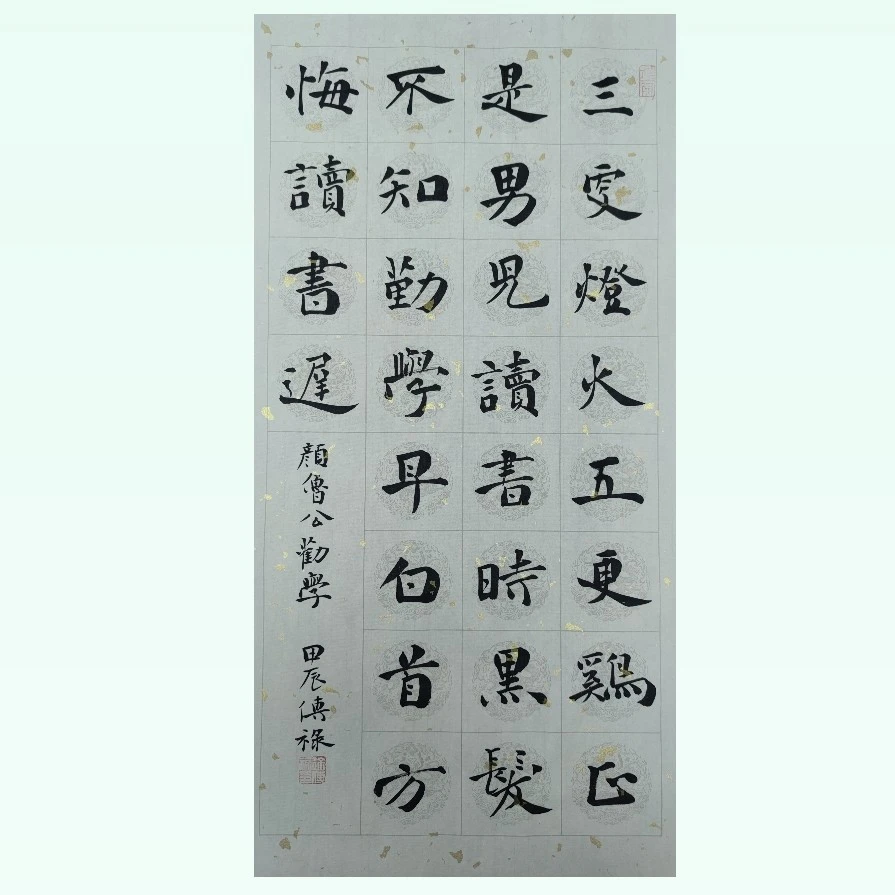 三更燈火五更鷄正
是男兒讀書時黑髮
不知勤學早白首方
悔讀書遲
顏魯公勸學 甲辰傳祿